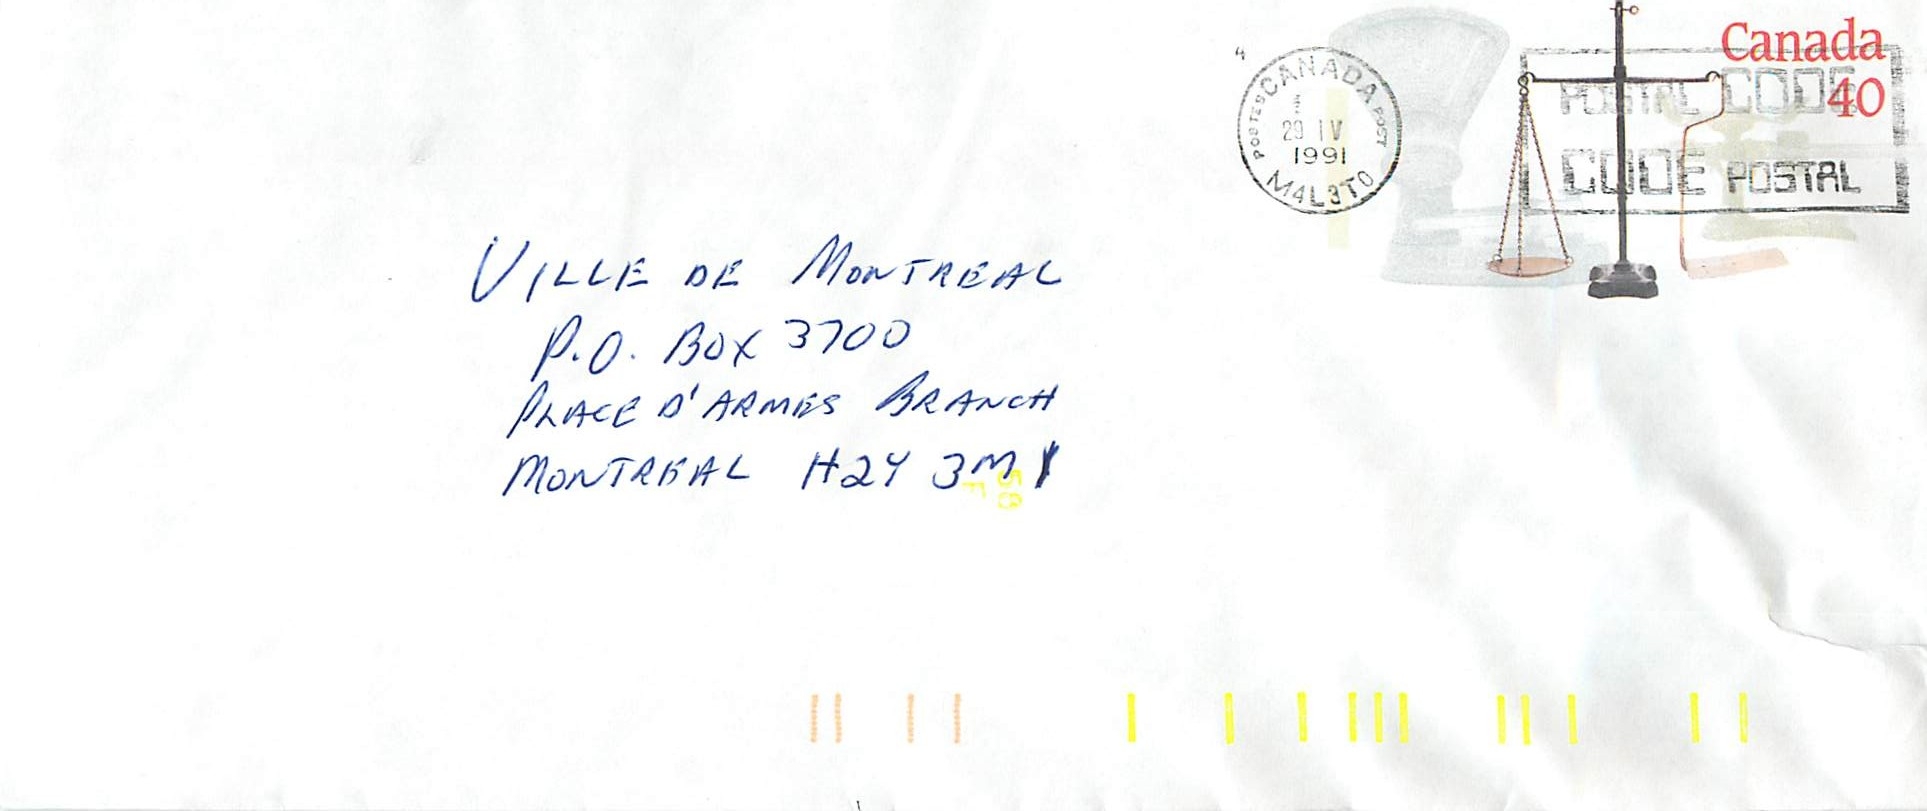 4
POSTES CANADA POST
29 IV
1991
M4L3T0
Canada
40
POSTAL CODE
CODE POSTAL
VILLE DE MONTREAL
P.O. BOX 3700
PLACE D'ARMES BRANCH
MONTREAL H2Y 3M1
58
F